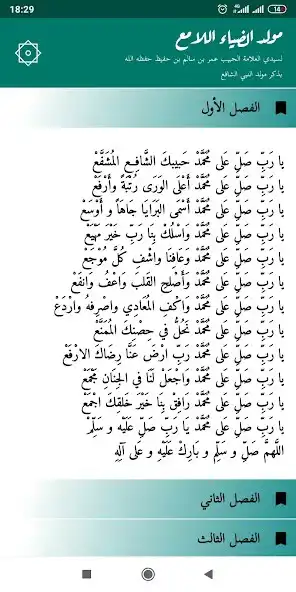 18:29
14
مولد الضياء اللامع
لسيدي العلامة الحبيب عمر بن سالم بن حفيظ حفظه الله
بذكر مولد النبي الشافع
الفصل الأول
يا رَبِّ صَلِّ عَلى مُحَمَّدْ حَبِيبِكَ الشَّافِعِ المُشَفَّعْ
يا رَبِّ صَلِّ عَلى مُحَمَّدْ أَعْلَى الوَرَى رُتْبَةً وَأَرْفَعْ
يا رَبِّ صَلِّ عَلى مُحَمَّدْ أَسْمَى البَرَايَا جَاهَاً و أَوْسَعْ
يا رَبِّ صَلِّ عَلى مُحَمَّدْ وَاسْلُكْ بِنَا رَبِّ خَيْرَ مَهْيَعْ
يا رَبِّ صَلِّ عَلى مُحَمَّدْ وَعَافِنَا واشْفِ كُلَّ مُوْجَعْ
يا رَبِّ صَلِّ عَلى مُحَمَّدْ وَأَصْلِحِ القَلبَ وَاعْفُ وَانفَعْ
يا رَبِّ صَلِّ عَلى مُحَمَّدْ وَاكْفِ المُعَادِي واصْرِفْهُ وارْدَعْ
يا رَبِّ صَلِّ عَلى مُحَمَّدْ نَحُلُّ في حِصْنِكَ المُمَنَّعْ
يا رَبِّ صَلِّ عَلى مُحَمَّدْ رَبِّ ارْضَ عَنَّا رِضَاكَ الارْفَعْ
يا رَبِّ صَلِّ عَلى مُحَمَّدْ وَاجْعَلْ لَنَا في الجِنَانِ مَجْمَعْ
يا رَبِّ صَلِّ عَلى مُحَمَّدْ رَافِقْ بِنَا خَيْرَ خَلقِكَ اجْمَعْ
يا رَبِّ صَلِّ عَلى مُحَمَّدْ يَا رَبِّ صَلِّ عَلَيْهِ و سَلِّمْ
اللَّهُمَّ صَلِّ و سَلِّمْ و بَارِكْ عَلَيْهِ و عَلى آلِهِ
الفصل الثاني
الفصل الثالث